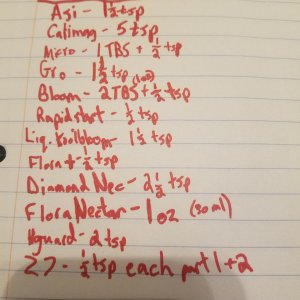 Asi - 1 1/2 tsp
Calimag - 5 tsp
Micro - 1 TBS + 1/2 tsp
Gro - 1 1/2 tsp
Bloom - 2 TBS + 1/2 tsp
Rapidstart - 1/2 tsp
Liq. Koolbloom - 1 1/2 tsp
Flora + - 1/2 tsp
Diamond Nec - 2 1/2 tsp
Flora Nectar - 1 oz (30 ml)
Hyguard - 2 tsp
27 - 1/2 tsp each part 1+2